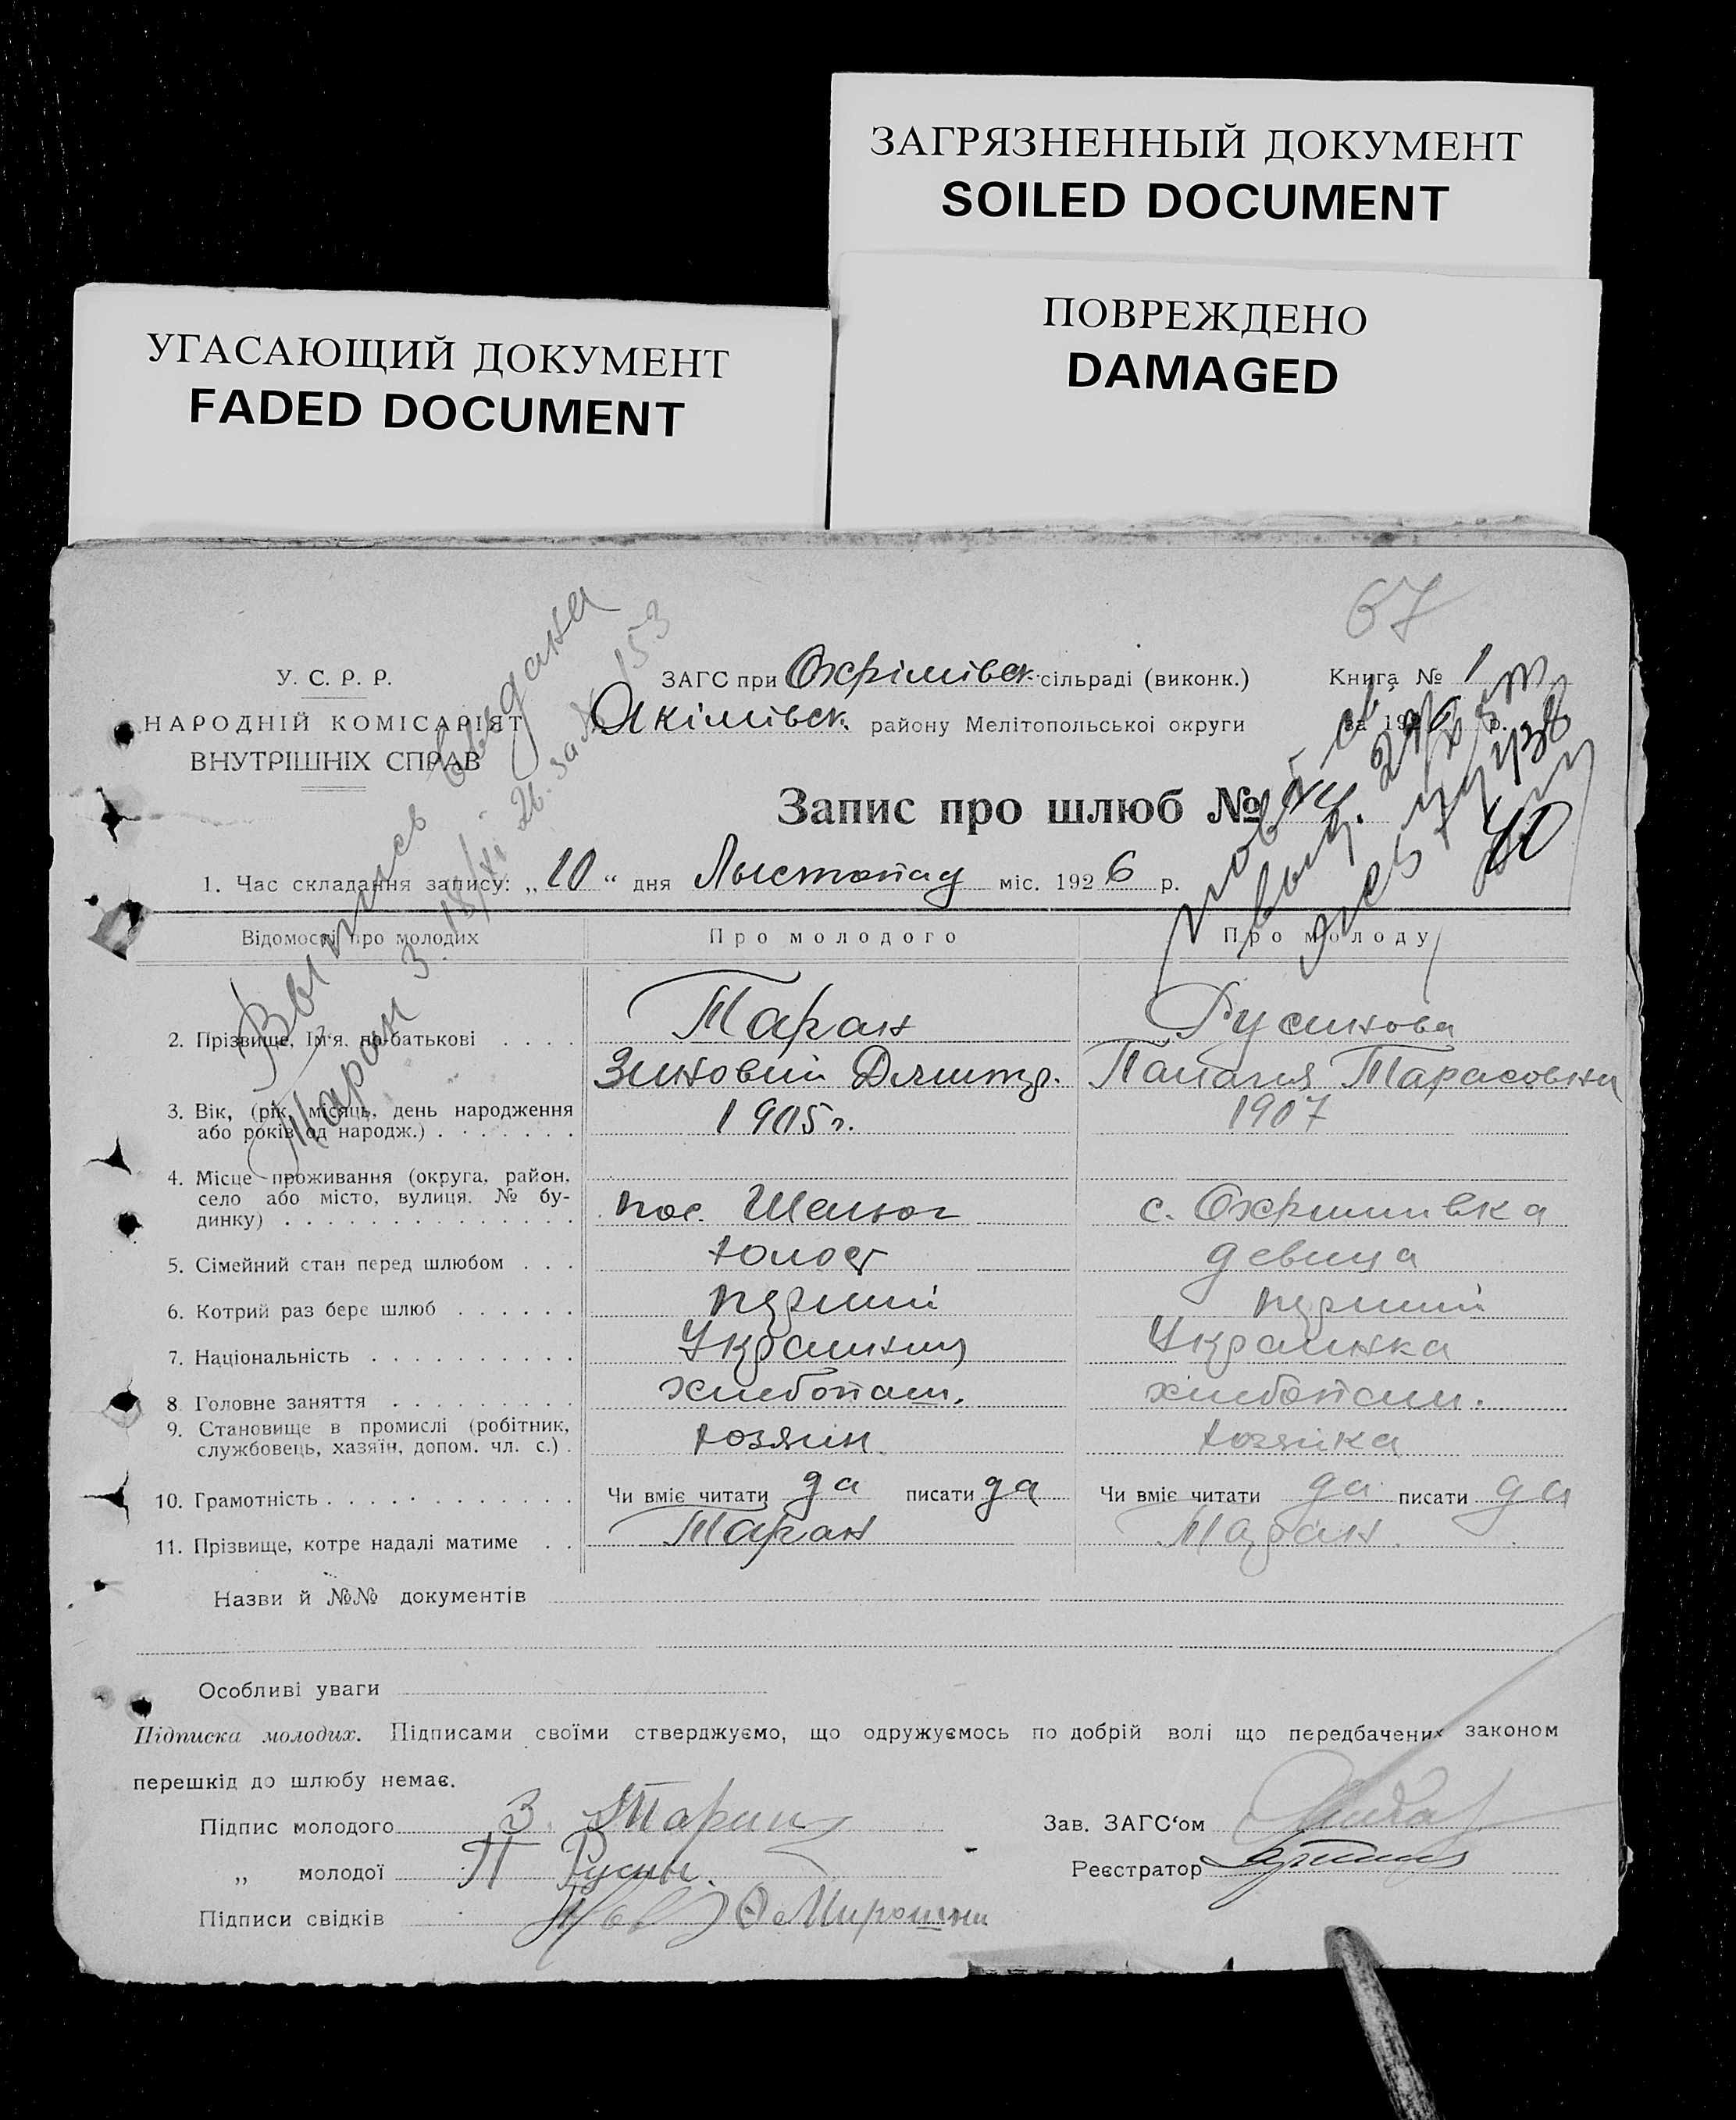 ЗАГРЯЗНЕННЫЙ ДОКУМЕНТ
SOILED DOCUMENT
ПОВРЕЖДЕНО
DAMAGED
УГАСАЮЩИЙ ДОКУМЕНТ
FADED DOCUMENT
67
У. С. Р. Р.
НАРОДНІЙ КОМІСАРІЯТ
ВНУТРІШНІХ СПРАВ
Выпись выдана
Таран З. 18/XI 26. за № 153
ЗАГС при Охрімівск. сільраді (виконк.)
Якімівск. району Мелітопольськоі округи
Книга № 1
за 1926 р.
Запис про шлюб №
40
1. Час складання запису: „10“ дня Лыстопад міс. 1926 р.
Відомості про молодих
Про молодого
Про молоду
2. Прізвище, Ім'я. по-батькові
Таран
Русинова
Зиновий Дмитр.
Палагия Тарасовна
3. Вік, (рік, місяць, день народження
або років од народж.)
1905 г.
1907
4. Місце проживання (округа, район,
село або місто, вулиця. № бу-
динку)
пос. Шелюг
с. Охримивка
5. Сімейний стан перед шлюбом
юнос
девица
6. Котрий раз бере шлюб
перший
перший
7. Національність
Украинец
Украинка
8. Головне заняття
хлебопаш.
хлебопаш.
9. Становище в промислі (робітник,
службовець, хазяїн, допом. чл. с.)
хозяин
хозяйка
10. Грамотність
Чи вміє читати да писати да
Чи вміє читати да писати да
11. Прізвище, котре надалі матиме
Таран
Таран
Назви й №№ документів
Особливі уваги
Підписка молодих. Підписами своїми стверджуємо, що одружуємось по добрій волі що передбачених законом
перешкід до шлюбу немає.
Підпис молодого З. Таран
Зав. ЗАГС‘ом
„ молодої П Русин.
Реєстратор
Підписи свідків Мирошни